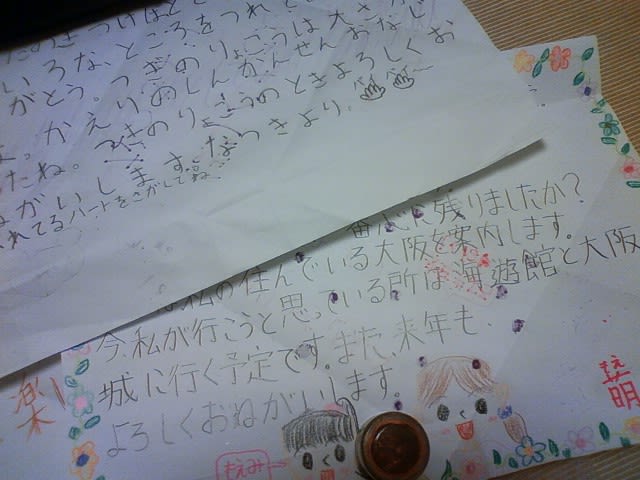 いろな、ところをつれて
がとう。つぎのりょこうは大さか
よ。かえりのしんかんせんおなじ
たね。つぎのりょこうのときよろしくお
ねがいします。なつきより。
れてるハートをさがしてね
残りましたか?
は私の住んでいる大阪を案内します。
今、私が行こうと思っている所は海遊館と大阪
城に行く予定です。また、来年も、
よろしくおねがいします。
楽
もえみ→
萌